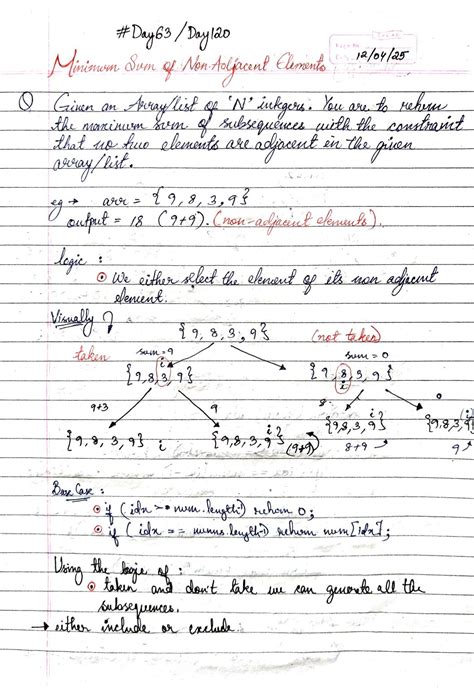 #Day63/Day120
12/04/25
Minimum Sum of Non-Adjacent Elements
Q Given an Array/list of 'N' integers. You are to return
the maximum sum of subsequences with the constraint
that no two elements are adjacent in the given
array/list.
eg → arr = {9,8,3,9}
output = 18 (9+9). (non-adjacent elements).
logic :
We either select the element of its non adjacent
element.
Visually
{9,8,3,9} (not taken)
taken sum=9 sum=0
i
{9,8,3,9} {9,8,3,9}
i
9+3 9 8 0
{9,8,3,9} i {9,8,3,9} i (9+9) {9,8,3,9} i {9,8,3,9 i
8+9 9
Base Case :
if (idx num.length-1) return 0;
if (idx == length-1) return num[idx];
Using the logic of :
taken and don't take we can generate all the
subsequences.
→ either include or exclude.